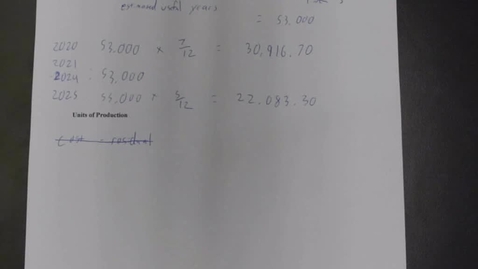 estimated useful years
= 53,000
2020 53,000 × 7/12 = 30,916.70
2021
2024 : 53,000
2025 53,000 × 5/12 = 22.083.30
Units of Production
cost - residual